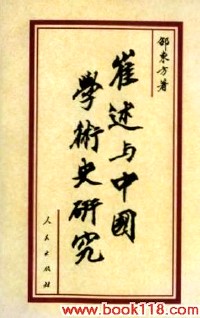 邵東方著
崔述与中國
學術史研究
人民出版社
www.book118.com